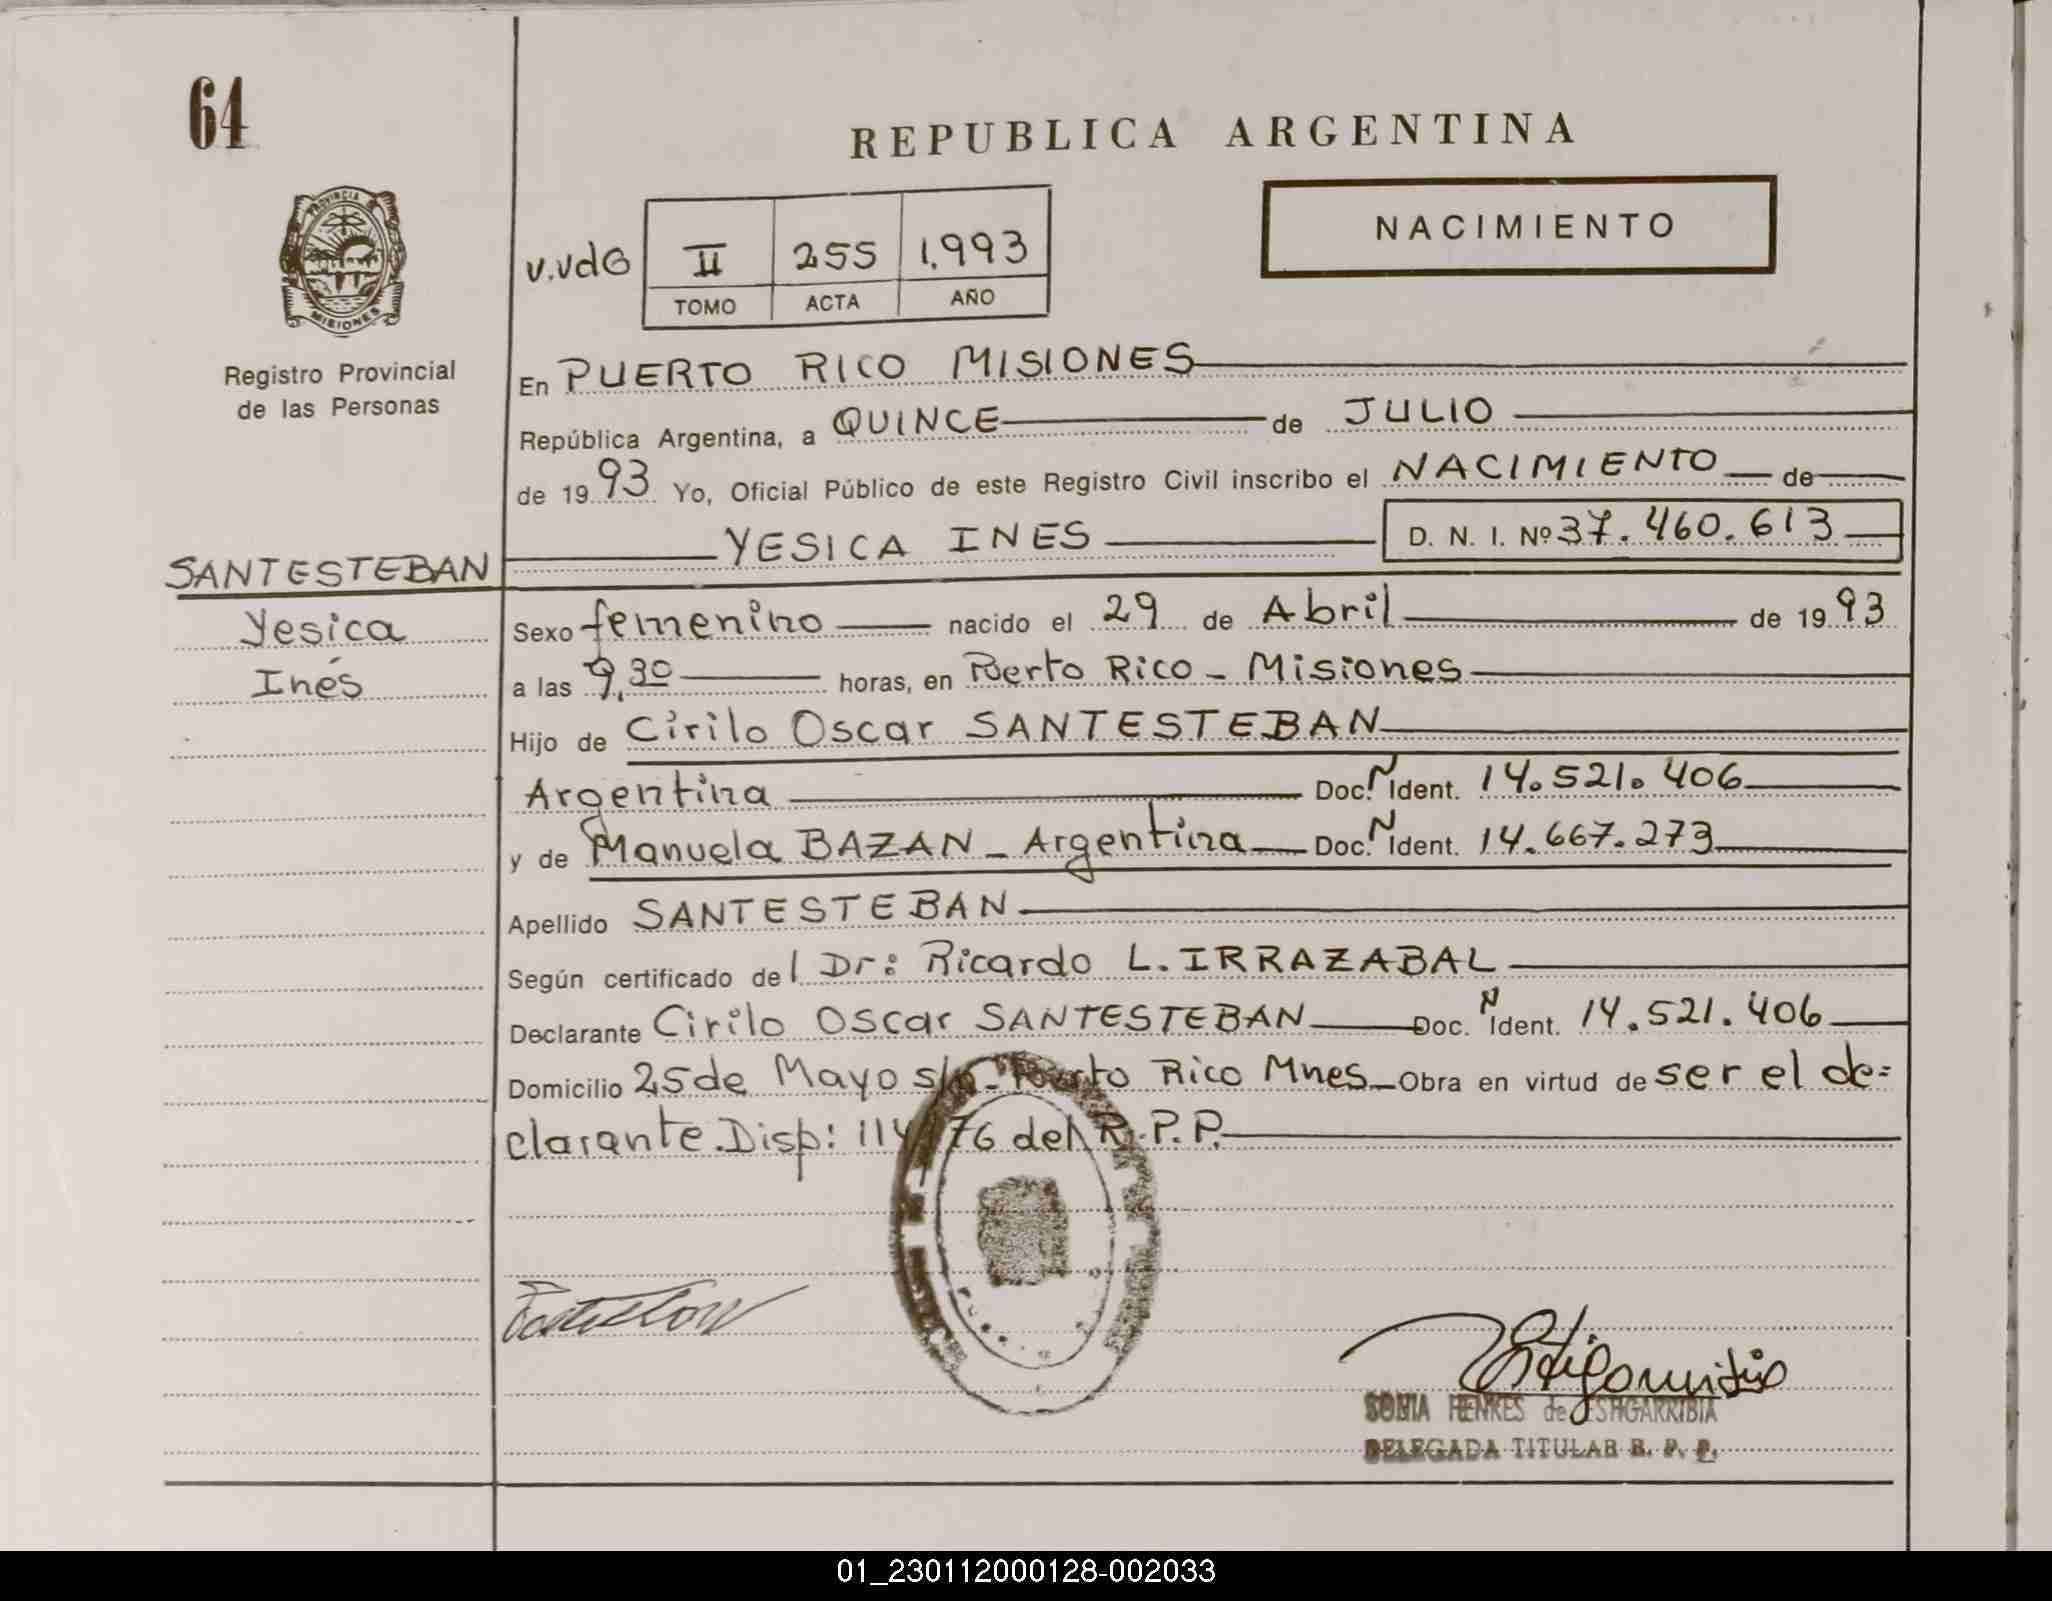 64
REPUBLICA ARGENTINA
NACIMIENTO
PROVINCIA
MISIONES
v.vdG II 255 1.993
TOMO ACTA AÑO
Registro Provincial
de las Personas
En PUERTO RICO MISIONES
República Argentina, a QUINCE de JULIO
de 1993 Yo, Oficial Público de este Registro Civil inscribo el NACIMIENTO de
YESICA INES D. N. I. Nº 37.460.613
SANTESTEBAN
Yesica
Inés
Sexo femenino nacido el 29 de Abril de 1993
a las 9,30 horas, en Puerto Rico - Misiones
Hijo de Cirilo Oscar SANTESTEBAN
Argentina Doc. N Ident. 14.521.406
y de Manuela BAZAN - Argentina Doc. N Ident. 14.667.273
Apellido SANTESTEBAN
Según certificado del Dr: Ricardo L. IRRAZABAL
Declarante Cirilo Oscar SANTESTEBAN Doc. N Ident. 14.521.406
Domicilio 25 de Mayo s/n - Puerto Rico Mnes - Obra en virtud de ser el de=
clarante. Disp: 114/76 del R.P.P.
SONIA HENKES de ESTIGARRIBIA
DELEGADA TITULAR R. P. P.
01_230112000128-002033